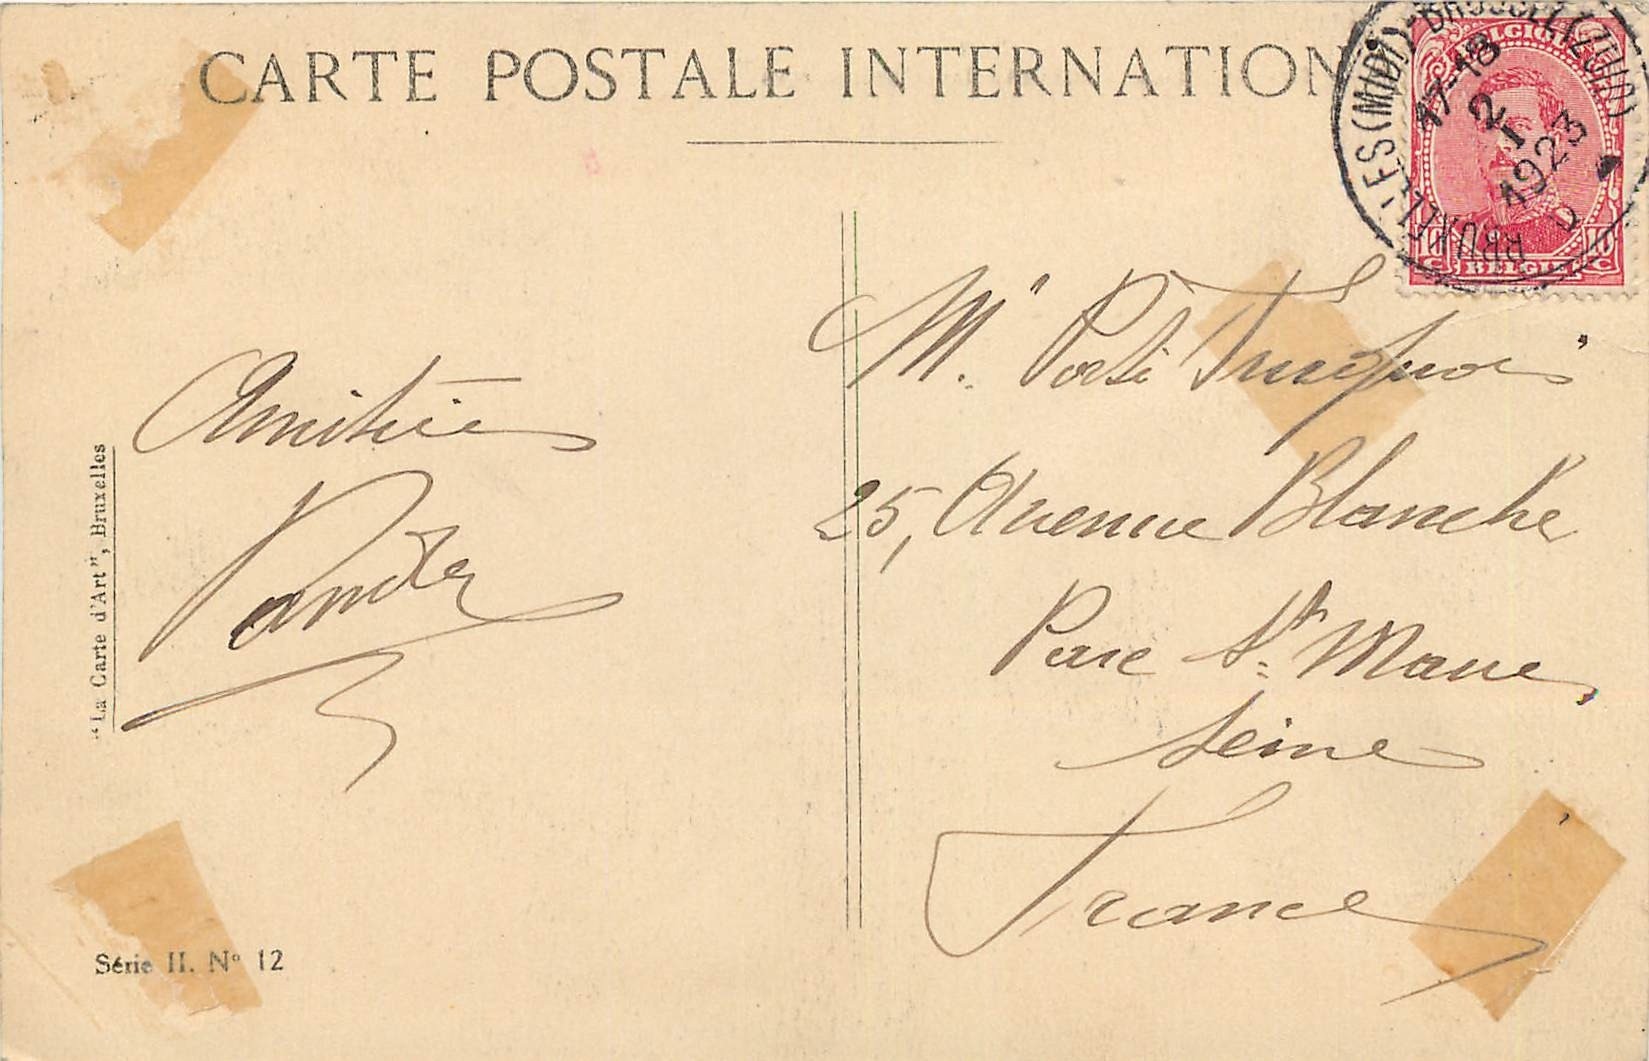 CARTE POSTALE INTERNATION
BRUXELLES (MIDI) - BRUSSEL (ZUID)
17-18
2
I
1923
D
BELGIQUE
10 C BELGIE 10 C
Amitiés
"La Carte d'Art", Bruxelles
Série II. N° 12
M. 
25, Avenue Blanche
Parc St. Maur
Seine
France